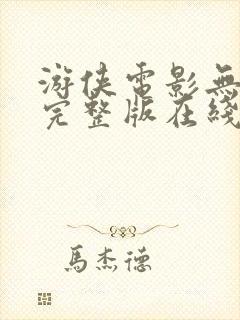 游侠電影無
完整版在綫
馬杰德